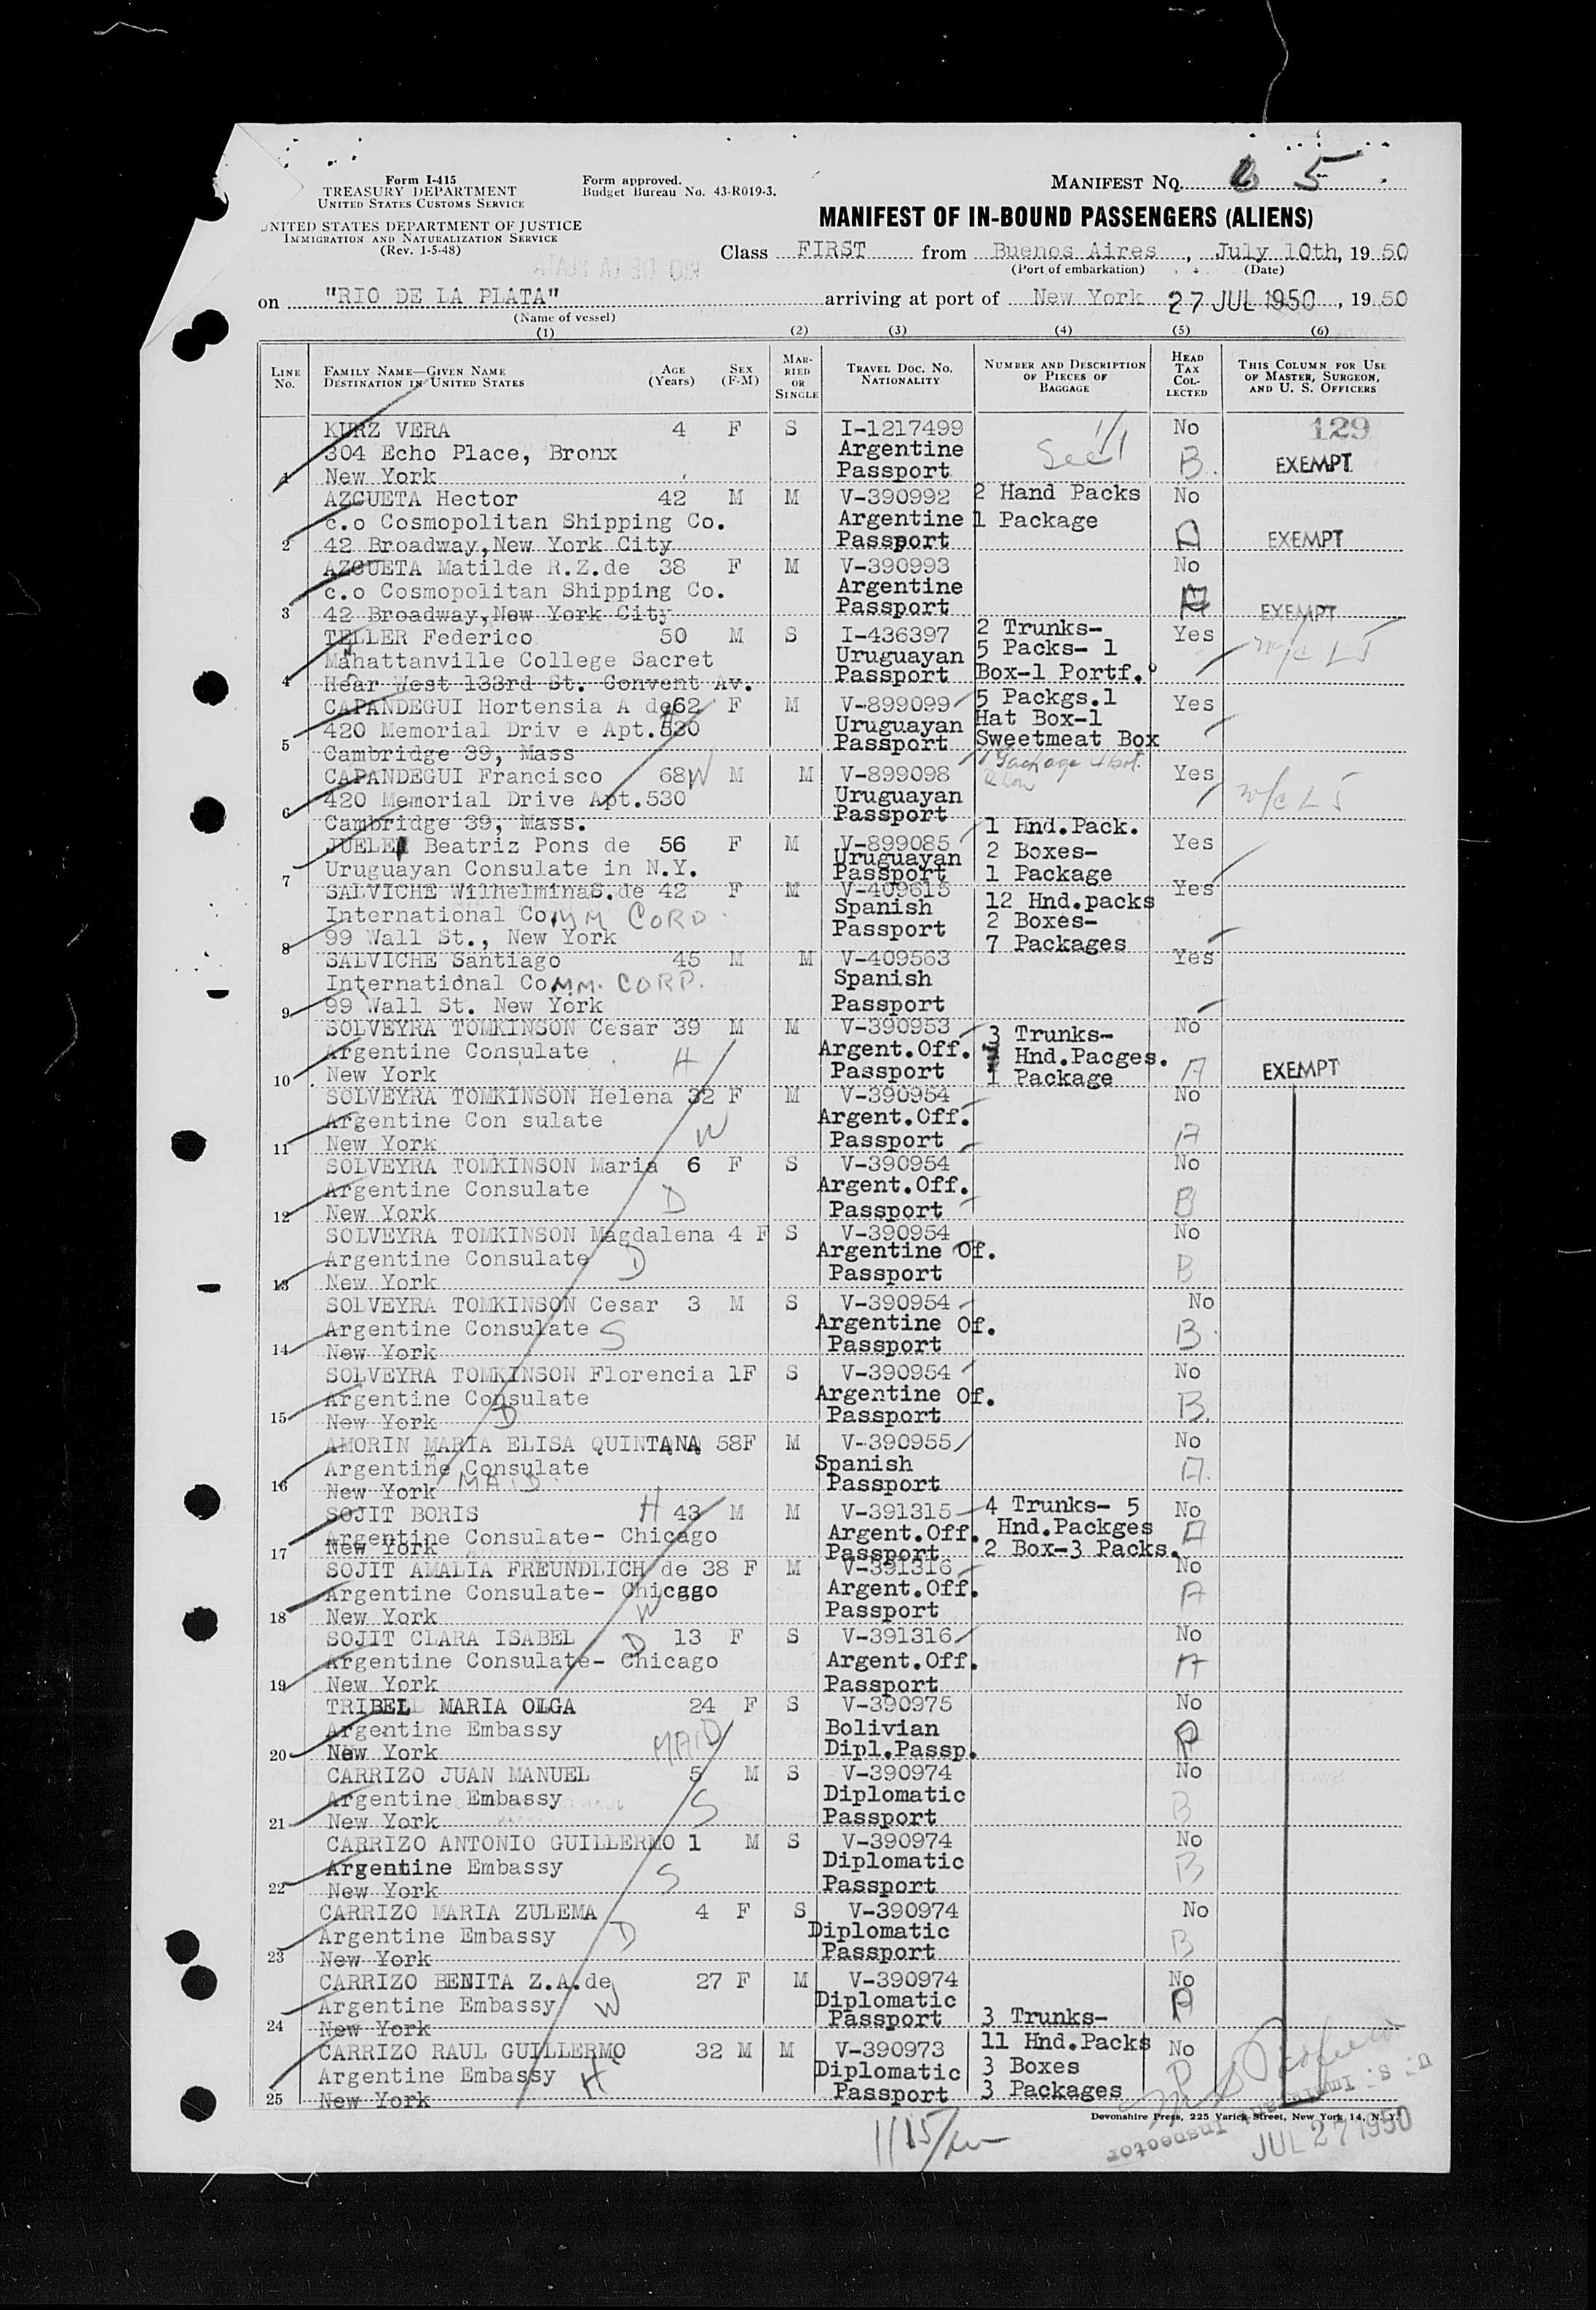 Form I-415
TREASURY DEPARTMENT
UNITED STATES CUSTOMS SERVICE
Form approved.
Budget Bureau No. 43-R019-3.
MANIFEST NO. 5
UNITED STATES DEPARTMENT OF JUSTICE
IMMIGRATION AND NATURALIZATION SERVICE
(Rev. 1-5-48)
MANIFEST OF IN-BOUND PASSENGERS (ALIENS)
Class FIRST from Buenos Aires, July 10th, 19 50
(Port of embarkation) (Date)
on "RIO DE LA PLATA" arriving at port of New York 27 JUL 1950, 19 50
(Name of vessel)
(1) (2) (3) (4) (5) (6)
LINE NO. FAMILY NAME—GIVEN NAME DESTINATION IN UNITED STATES AGE (Years) SEX (F-M) MARRIED OR SINGLE TRAVEL DOC. NO. NATIONALITY NUMBER AND DESCRIPTION OF PIECES OF BAGGAGE HEAD TAX COLLECTED THIS COLUMN FOR USE OF MASTER, SURGEON, AND U. S. OFFICERS
KURZ VERA 4 F S I-1217499 No 129
304 Echo Place, Bronx Argentine See
1 New York Passport B. EXEMPT
AZCUETA Hector 42 M M V-390992 2 Hand Packs No
c.o Cosmopolitan Shipping Co. Argentine 1 Package
2 42 Broadway,New York City Passport A EXEMPT
AZCUETA Matilde R.Z.de 38 F M V-390993 No
c.o Cosmopolitan Shipping Co. Argentine
3 42 Broadway,New York City Passport A EXEMPT
TELLER Federico 50 M S I-436397 2 Trunks- Yes
Mahattanville College Sacret Uruguayan 5 Packs- 1
4 Hear West 133rd St. Convent Av. Passport Box-1 Portf.
CAPANDEGUI Hortensia A de 62 F M V-899099 5 Packgs.1 Yes
420 Memorial Driv e Apt.530 Uruguayan Hat Box-1
5 Cambridge 39, Mass Passport Sweetmeat Box
CAPANDEGUI Francisco 68 W M M V-899098 1 Package Yes
420 Memorial Drive Apt.530 Uruguayan
6 Cambridge 39, Mass. Passport
JUELE Beatriz Pons de 56 F M V-899085 1 Hnd.Pack. Yes
Uruguayan Consulate in N.Y. Uruguayan 2 Boxes-
7 Passport 1 Package
SALVICHE WilhelminaS.de 42 F M V-409615 12 Hnd.packs Yes
International Co.MM CORP. Spanish 2 Boxes-
8 99 Wall St., New York Passport 7 Packages
SALVICHE Santiago 45 M M V-409563 Yes
International CoMM. CORP. Spanish
9 99 Wall St. New York Passport
SOLVEYRA TOMKINSON Cesar 39 M M V-390953 3 Trunks- No
Argentine Consulate H Argent.Off. Hnd.Pacges.
10 New York Passport 1 Package A EXEMPT
SOLVEYRA TOMKINSON Helena 32 F M V-390954 No
Argentine Con sulate W Argent.Off.
11 New York Passport A
SOLVEYRA TOMKINSON Maria 6 F S V-390954 No
Argentine Consulate D Argent.Off.
12 New York Passport B
SOLVEYRA TOMKINSON Magdalena 4 F S V-390954 No
Argentine Consulate D Argentine Of.
13 New York Passport B
SOLVEYRA TOMKINSON Cesar 3 M S V-390954 No
Argentine Consulate S Argentine Of.
14 New York Passport B
SOLVEYRA TOMKINSON Florencia 1F S V-390954 No
Argentine Consulate Argentine Of.
15 New York D Passport B.
AMORIN MARIA ELISA QUINTANA 58F M V-390955 No
Argentine Consulate Spanish A.
16 New York MAID Passport
SOJIT BORIS H 43 M M V-391315 4 Trunks- 5 No
Argentine Consulate- Chicago Argent.Off. Hnd.Packges A
17 New York Passport 2 Box-3 Packs.
SOJIT AMALIA FREUNDLICH de 38 F M V-391316 No
Argentine Consulate- Chicago Argent.Off. A
18 New York W Passport
SOJIT CLARA ISABEL D 13 F S V-391316 No
Argentine Consulate- Chicago Argent.Off. A
19 New York Passport
TRIBEL MARIA OLGA 24 F S V-390975 No
Argentine Embassy MAID Bolivian
20 New York Dipl.Passp. A
CARRIZO JUAN MANUEL 5 M S V-390974 No
Argentine Embassy S Diplomatic
21 New York Passport B
CARRIZO ANTONIO GUILLERMO 1 M S V-390974 No
Argentine Embassy S Diplomatic B
22 New York Passport
CARRIZO MARIA ZULEMA 4 F S V-390974 No
Argentine Embassy D Diplomatic
23 New York Passport B
CARRIZO BENITA Z.A.de 27 F M V-390974 No
Argentine Embassy W Diplomatic A
24 New York Passport 3 Trunks-
CARRIZO RAUL GUILLERMO 32 M M V-390973 11 Hnd.Packs No
Argentine Embassy H Diplomatic 3 Boxes
25 New York Passport 3 Packages
Devonshire Press, 225 Varick Street, New York 14, N. Y.
U. S. Immigrant Inspector
JUL 27 1950